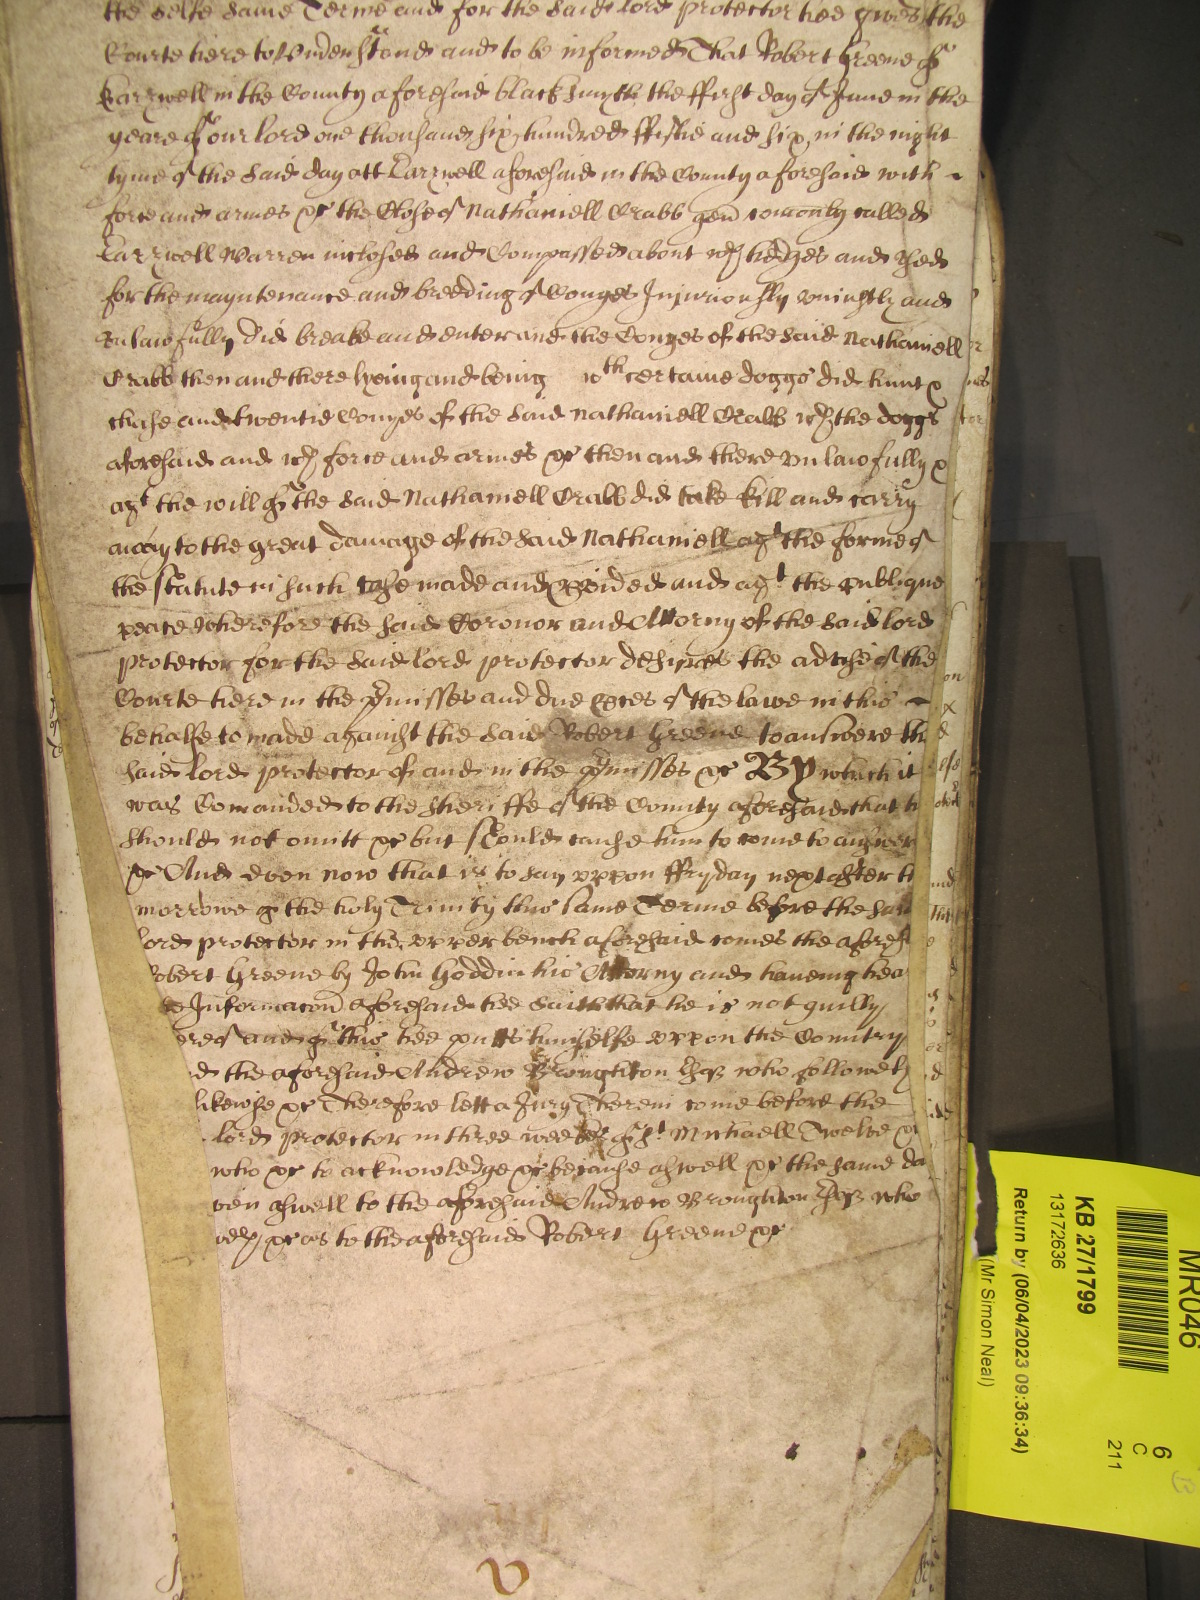 the selfe same Terme and for the said lord protector hee gives the
Courte heere to Understand and to be informed That Robert Greene of
Karswell in the County aforesaid blacksmyth the ffirst day of June in the
yeare of our lord one thousand six hundred ffiftie and six in the night
tyme of the said day att Karswell aforesaid in the County aforesaid with
force and armes &c the Close of Nathaniell Crabb gen comonly called
Karswell Warren inclosed and Compassed about wth hedges and
for the mayntenance and breeding of Conyes Injuriously uniustly and
unlawfully did breake and enter and the Conyes of the said Nathaniell
Crabb then and there lyeing and being wth certaine doggs did hunt &
chase and twentie Conyes of the said Nathaniell Crabb wth the doggs
aforesaid and wth force and armes &c then and there unlawfully &
agt the will of the said Nathaniell Crabb did take kill and carry
away to the great damage of the said Nathaniell agt the forme of
the statute in such case made and pvided and agt the publique
peace Wherefore the said Coronor and Attorny of the said lord
protector for the said lord protector desires the advise of the
Courte heere in the pmisses and due pces of the lawe in this
behalfe to made against the said Robert Greene to answere the
said lord protector of and in the pmisses &c By which it
was Comanded to the Sheriffe of the County aforesaid that h
should not omitt &c but should cause him to come to answer
&c And even now that is to say uppon ffryday next after th
morrowe of the holy Trinity this same Terme before the sai
lord protector in the upper bench aforesaid comes the afores
obert Greene by John Hoddin his Attorny and haveing hea
Informacon aforesaid hee saith that he is not guilty
ereof and of this hee putts himselfe uppon the Country
d the aforesaid Andrew Broughton Esq who followeth
likewise &c Therefore lett a Jury Therein come before the
lord protector in three weekes of St Michaell Twelve &
who &c to acknowledge &c because aswell &c the same da
ven aswell to the aforesaid Andrew Broughton Esq who
&c as to the aforesaid Robert Greene &c
MR046
6
C
211
KB 27/1799
13172636
Return by (06/04/2023 09:36:34)
(Mr Simon Neal)